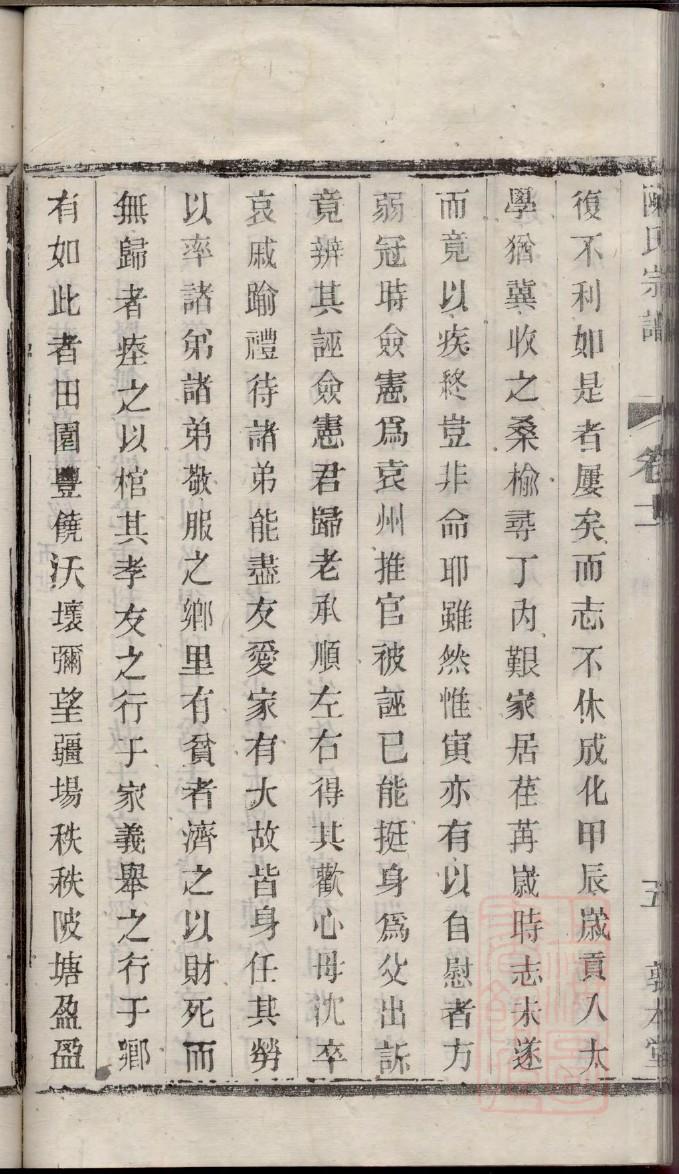 陳氏宗譜
卷十
五
敦本堂
復不利如是者屢矣而志不休成化甲辰歲貢入太
學猶冀收之桑榆尋丁內艱家居荏苒歲時志未遂
而竟以疾終豈非命耶雖然惟寅亦有以自慰者方
弱冠時僉憲爲袁州推官被誣已能挺身爲父出訴
竟辨其誣僉憲君歸老承順左右得其歡心母沈卒
哀戚踰禮待諸弟能盡友愛家有大故皆身任其勞
以率諸弟諸弟敬服之鄉里有貧者濟之以財死而
無歸者瘞之以棺其孝友之行于家義舉之行于鄉
有如此者田園豐饒沃壤彌望疆場秩秩陂塘盈盈